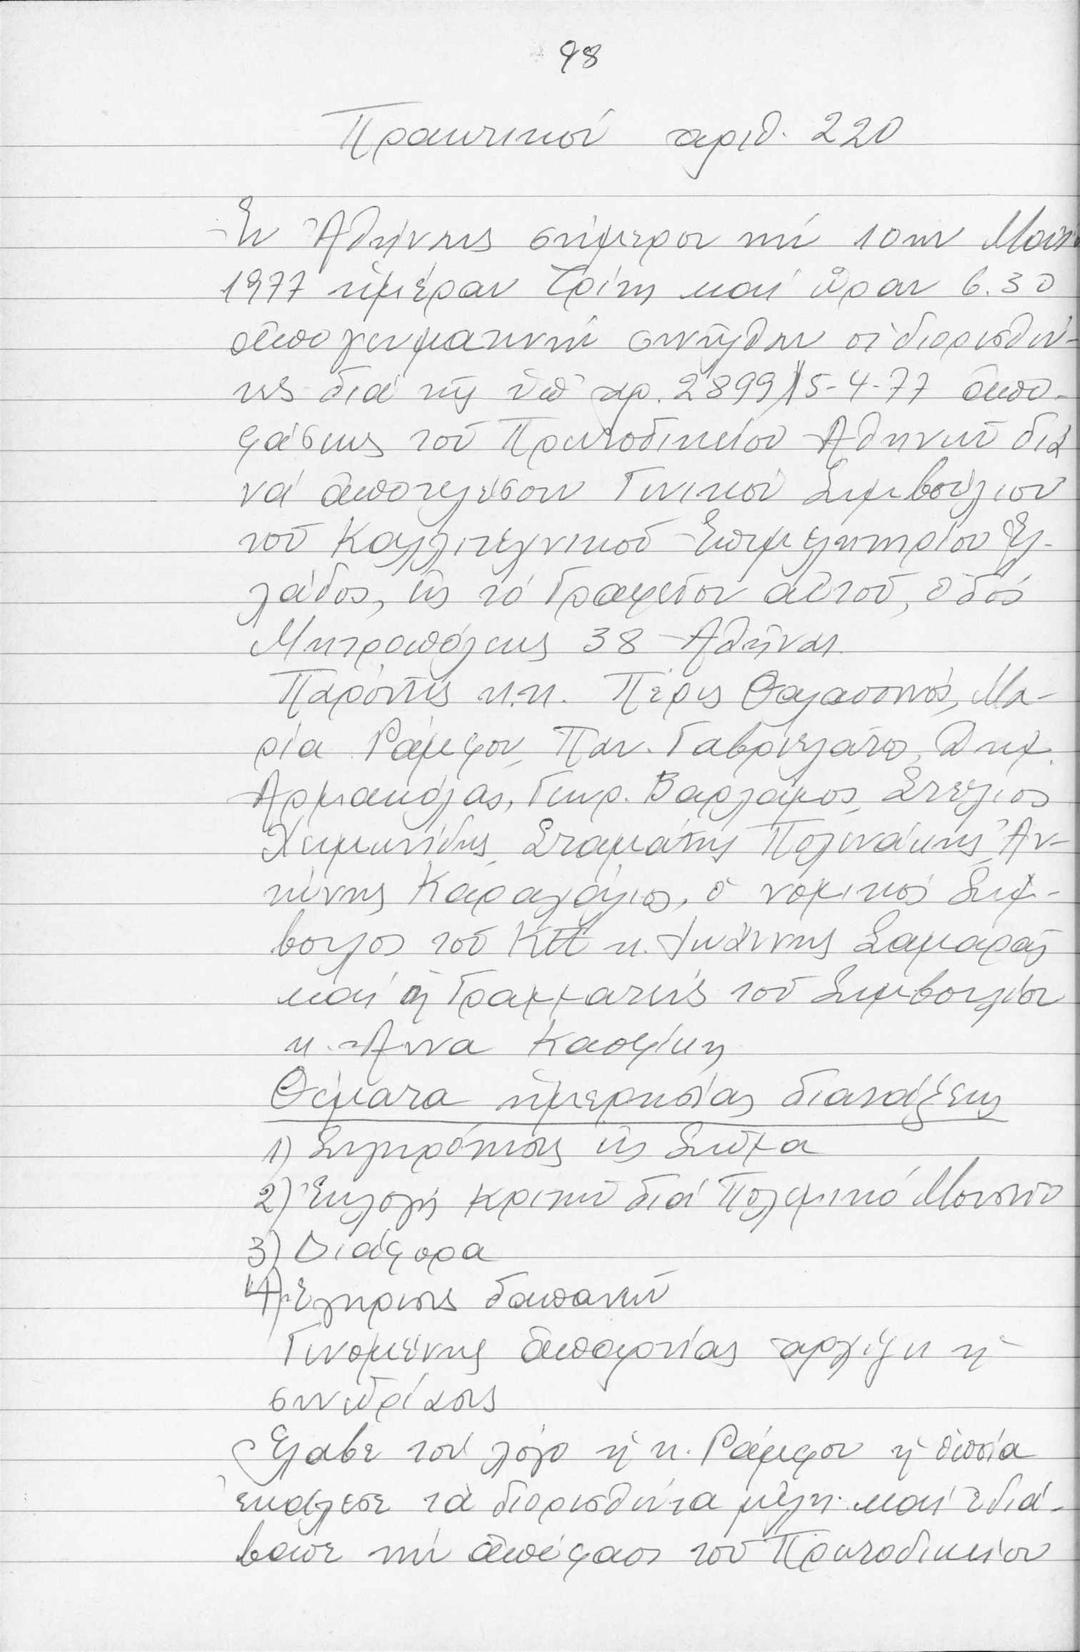 98
Πρακτικόν ἀριθ. 220
Ἐν Ἀθήναις σήμερον τήν 10ην Μαΐου
1977 ἡμέραν Τρίτη καί ὥραν 6.30
ἀπογευματινήν συνῆλθον οἱ διορισθέν-
τες διά τῆς ὑπ' ἀρ. 2899/15-4-77 ἀπο-
φάσεως τοῦ Πρωτοδικείου Ἀθηνῶν διά
νά ἀποτελέσουν Γενικόν Συμβούλιον
τοῦ Καλλιτεχνικοῦ Ἐπιμελητηρίου Ἑλ-
λάδος, εἰς τό Γραφεῖον αὐτοῦ, ὁδός
Μητροπόλεως 38 Ἀθῆναι.
Παρόντες κ.κ. Πέρις Θαλασσινός, Μα-
ρία Ράμφου, Παν. Γαβριελάτο, Δημ.
Αρμακόλας, Γεωρ. Βαρλάμος, Στέλιος
Χειμωνίδης, Σταμάτης Πολενάκης Ἀν-
τώνης Καραχάλιος, ὁ νομικός Σύμ-
βουλος τοῦ ΚΕΕ κ. Ἰωάννης Σαμαρᾶς
καί ἡ Γραμματεύς τοῦ Συμβουλίου
κ. Ἄννα Κασφίκη
Θέματα ἡμερησίας διατάξεως
1) Συγκρότησις εἰς Σῶμα
2) Ἐκλογή κριτῶν διά Πολεμικό Μουσεῖο
3) Διάφορα
4) Ἔγκρισις δαπανῶν
Γενομένης ἀπαρτίας ἀρχίζει ἡ
συνεδρίασις
Ἔλαβε τόν λόγο ἡ κ. Ράμφου ἡ ὁποία
ἐκάλεσε τά διορισθέντα μέλη καί ἐδιά-
βασε τήν ἀπόφαση τοῦ Πρωτοδικείου